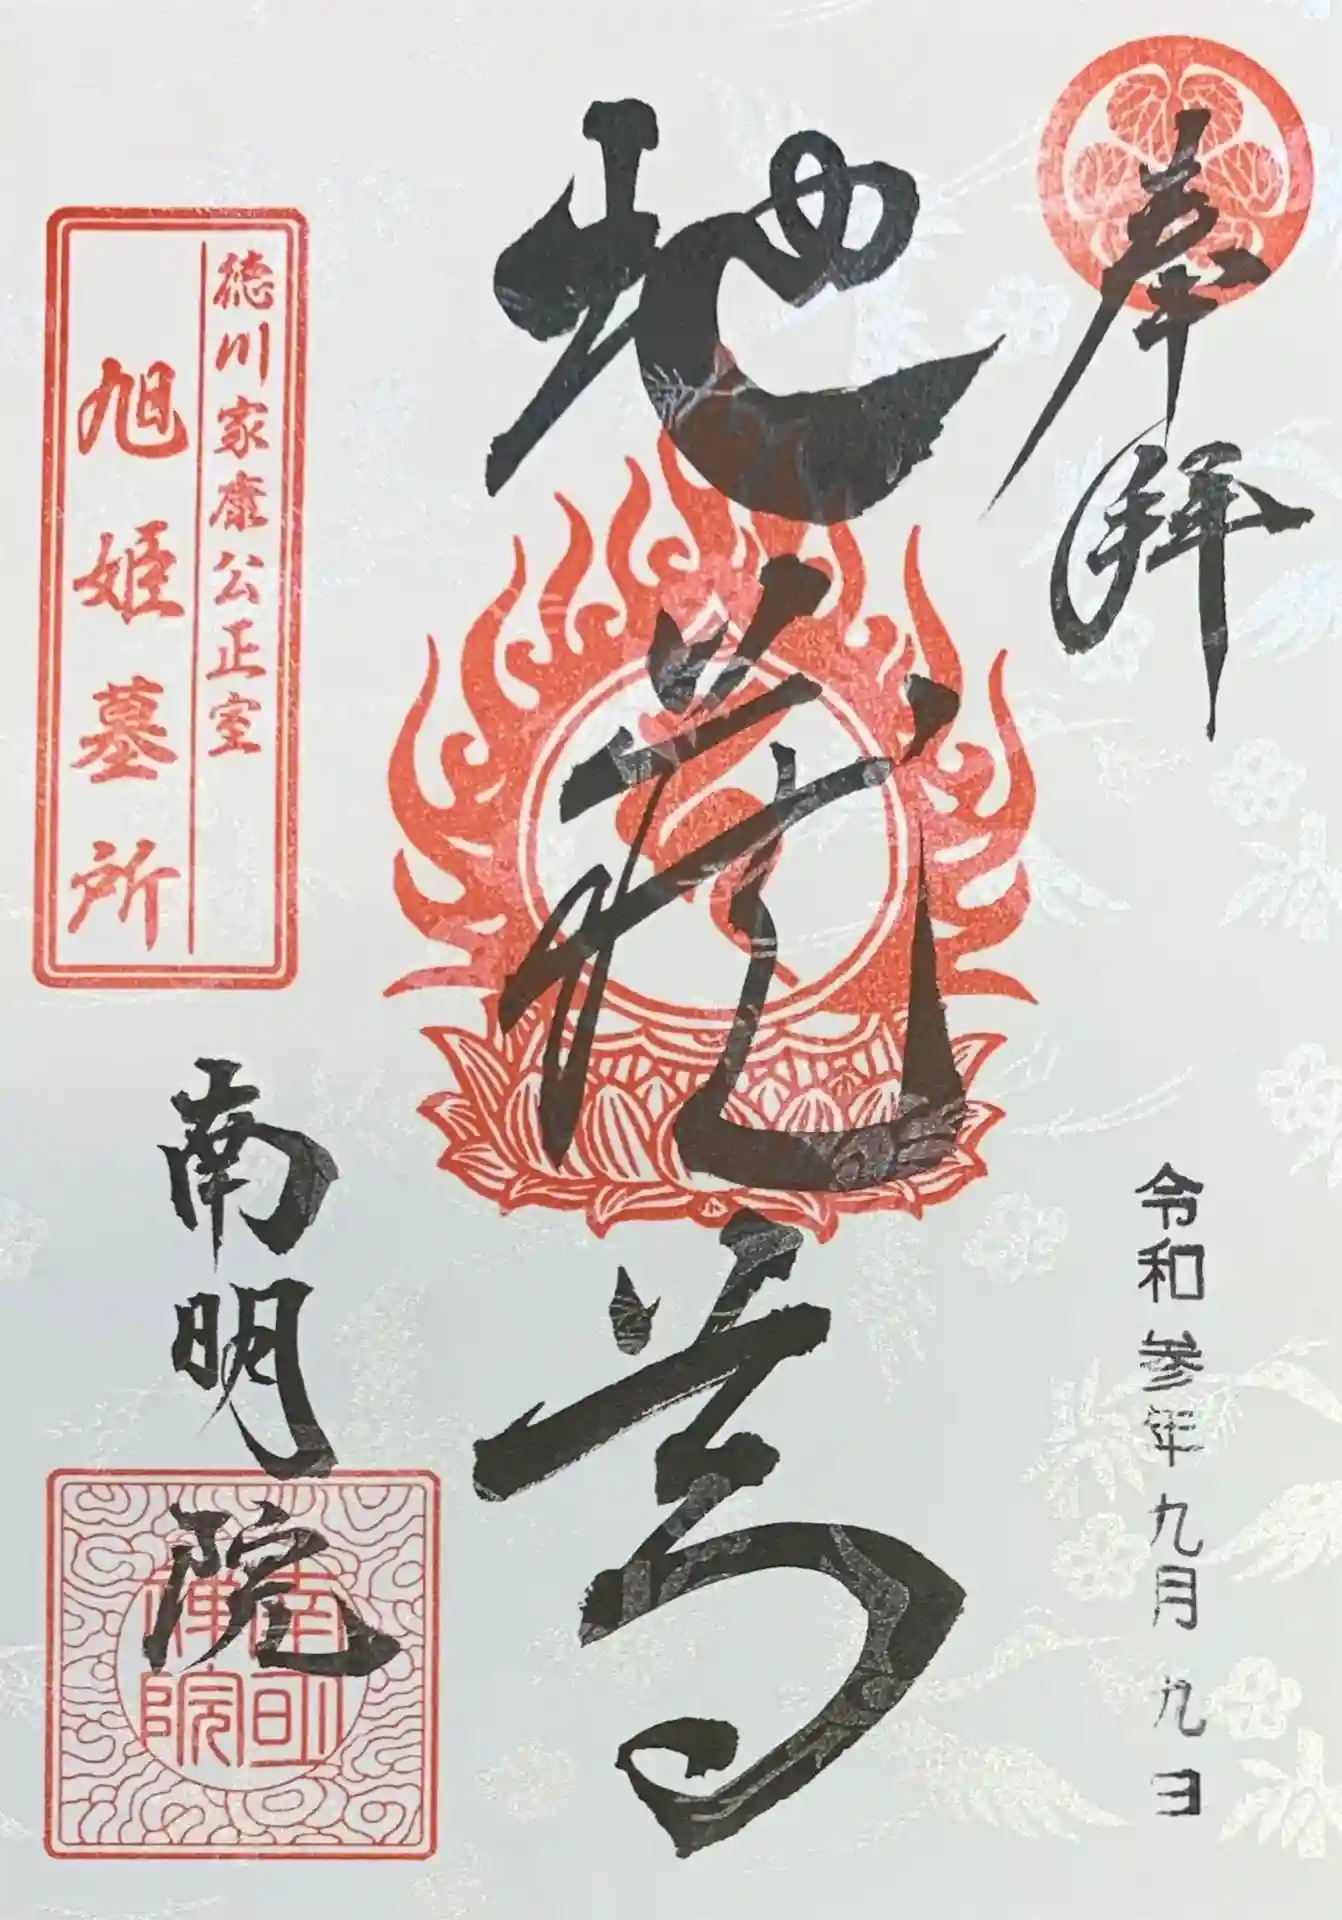 奉拝
令和参年九月九日
地蔵尊
徳川家康公正室
旭姫墓所
南明院
南明禅院